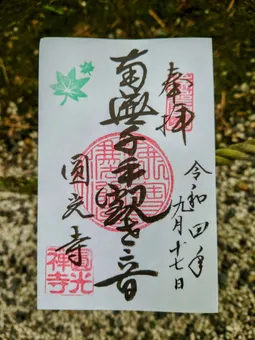 奉拝
令和四年
九月十七日
南無千手観世音
圓光寺
圓光禅寺